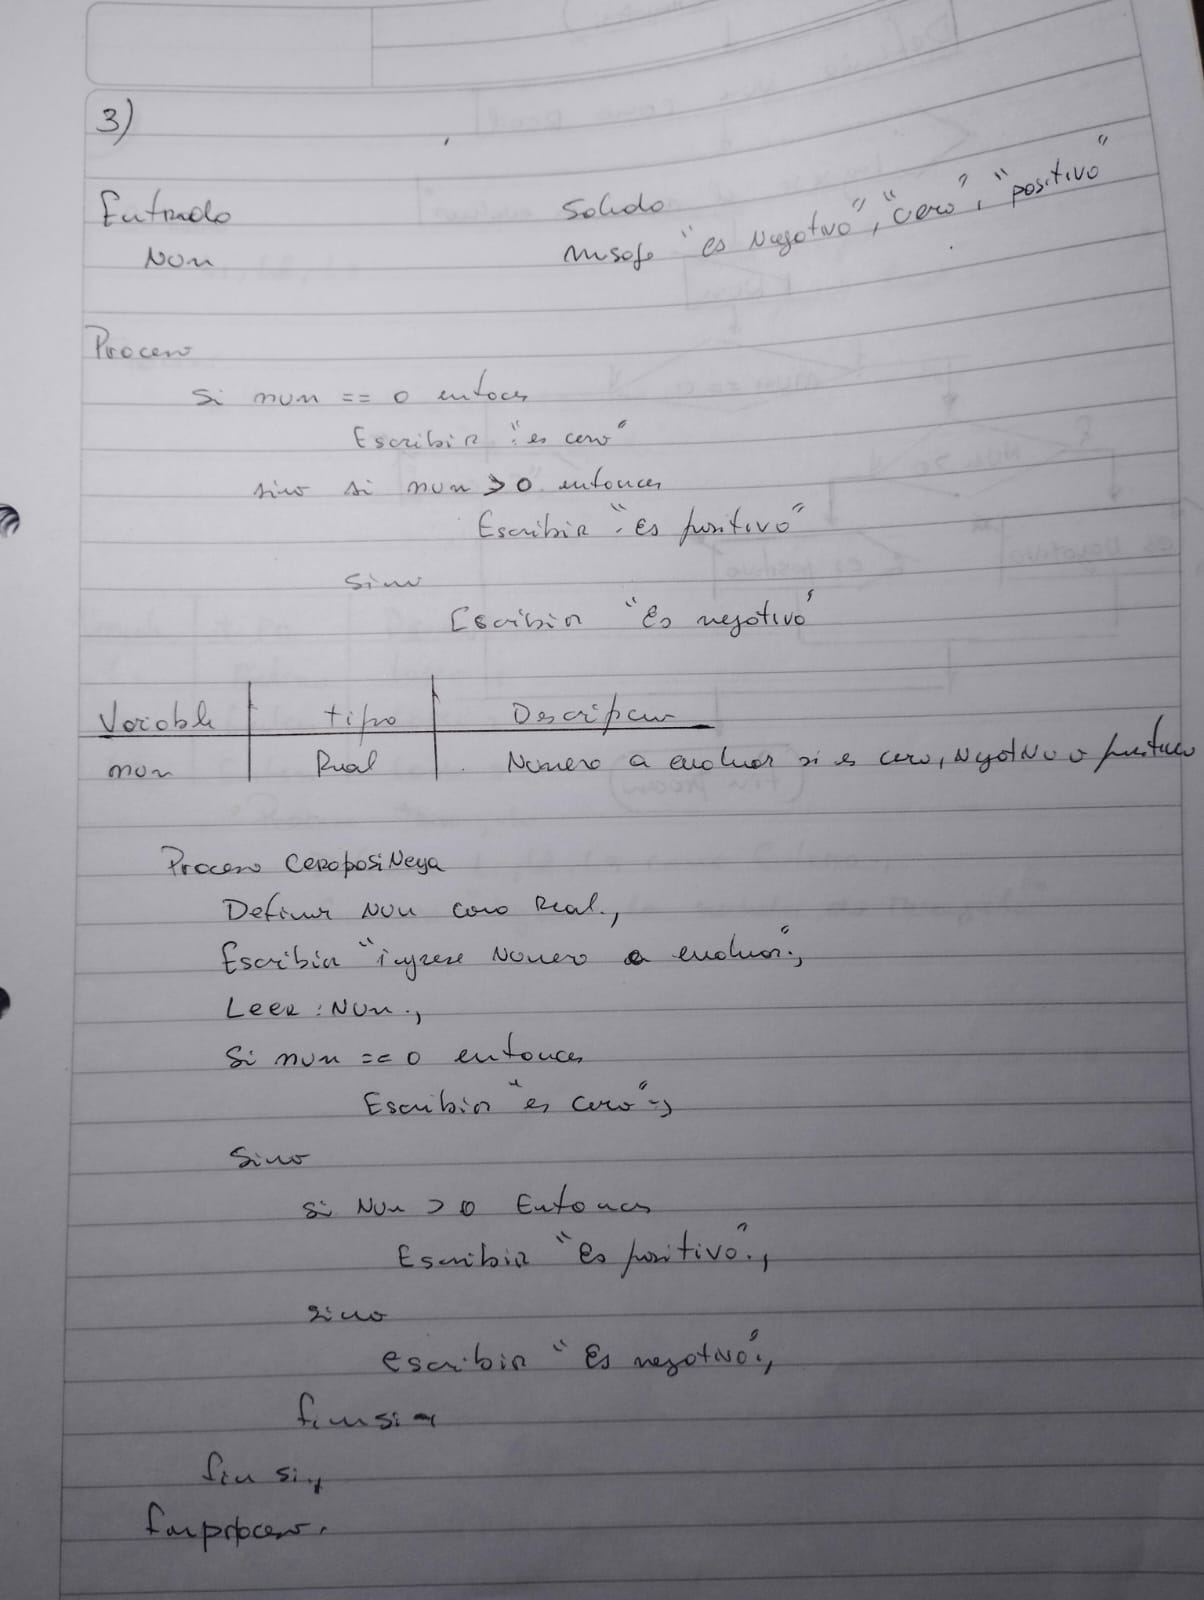 3)
Entrada Salida
Num msaje "es Negativo", "cero", "positivo"
Proceso
Si num == 0 entoces
Escribir "es cero"
sino si num > 0 entonces
Escribir "es positivo"
sino
Escribir "Es negativo"
Variable tipo Descripcion
num Real Numero a evaluar si es cero, Negativo o positivo
Proceso CeroposiNega
Definir Num como Real;
Escribir "ingrese Numero a evaluar";
Leer Num;
Si num == 0 entonces
Escribir "es cero";
Sino
si Num > 0 Entonces
Escribir "Es positivo";
sino
escribir "Es negativo";
finsi
fin si;
finproceso.